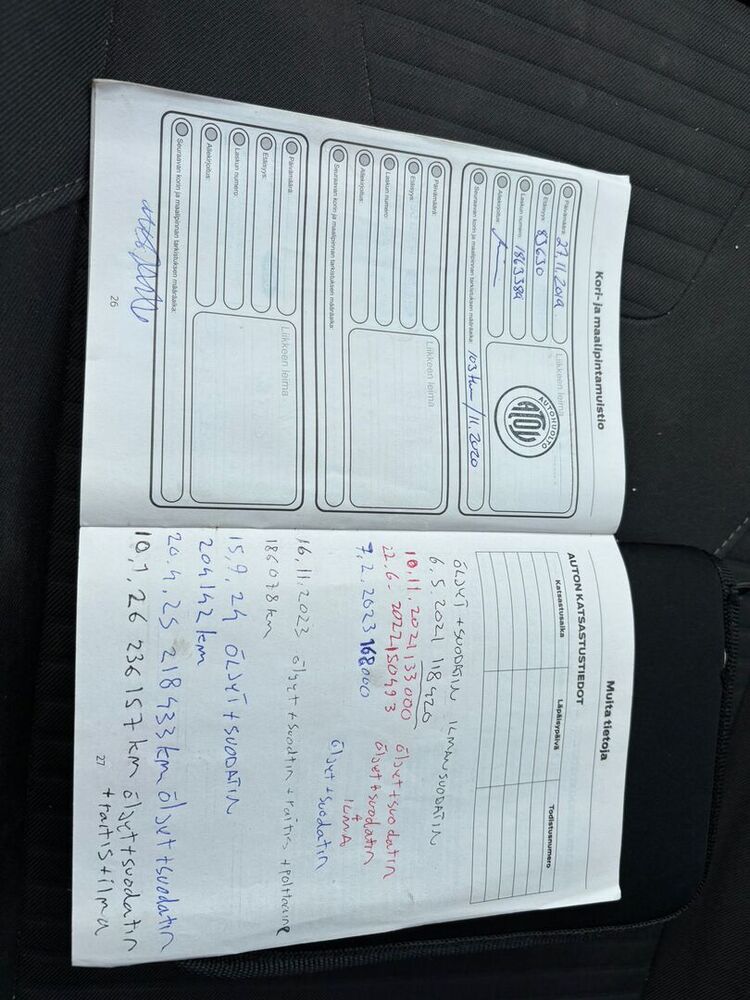 Kori- ja maalipintamuistio
Päivämäärä: 27.11.2019
Etäisyys: 83630
Laskun numero: 1863389
Allekirjoitus:
Seuraavan korin ja maalipinnan tarkistuksen määräaika: 103tkm/11.2020
Liikkeen leima
AUTOHUOLTO
ATOY
Päivämäärä:
Etäisyys:
Laskun numero:
Allekirjoitus:
Seuraavan korin ja maalipinnan tarkistuksen määräaika:
Liikkeen leima
Päivämäärä:
Etäisyys:
Laskun numero:
Allekirjoitus:
Seuraavan korin ja maalipinnan tarkistuksen määräaika:
Liikkeen leima
26
Muita tietoja
AUTON KATSASTUSTIEDOT
Katsastusaika Läpäisypäivä Todistusnumero
ÖLJYT + SUODATIN ILMANSUODATIN
6.5.2021 118420
10.11.2021 133000 öljyt+suodatin
22.6-2022 150493 öljyt+suodatin
+ ILMA
7.2.2023 168000 öljyt+suodatin
16.11.2023 öljyt+suodtin+raitis+polttoaine
186078km
15.9.24 ÖLJYT+SUODATIN
204142km
20.4.25 218433km öljyt+suodatin
10.1.26 236157km öljyt+suodatin
+raitis+ilma
27